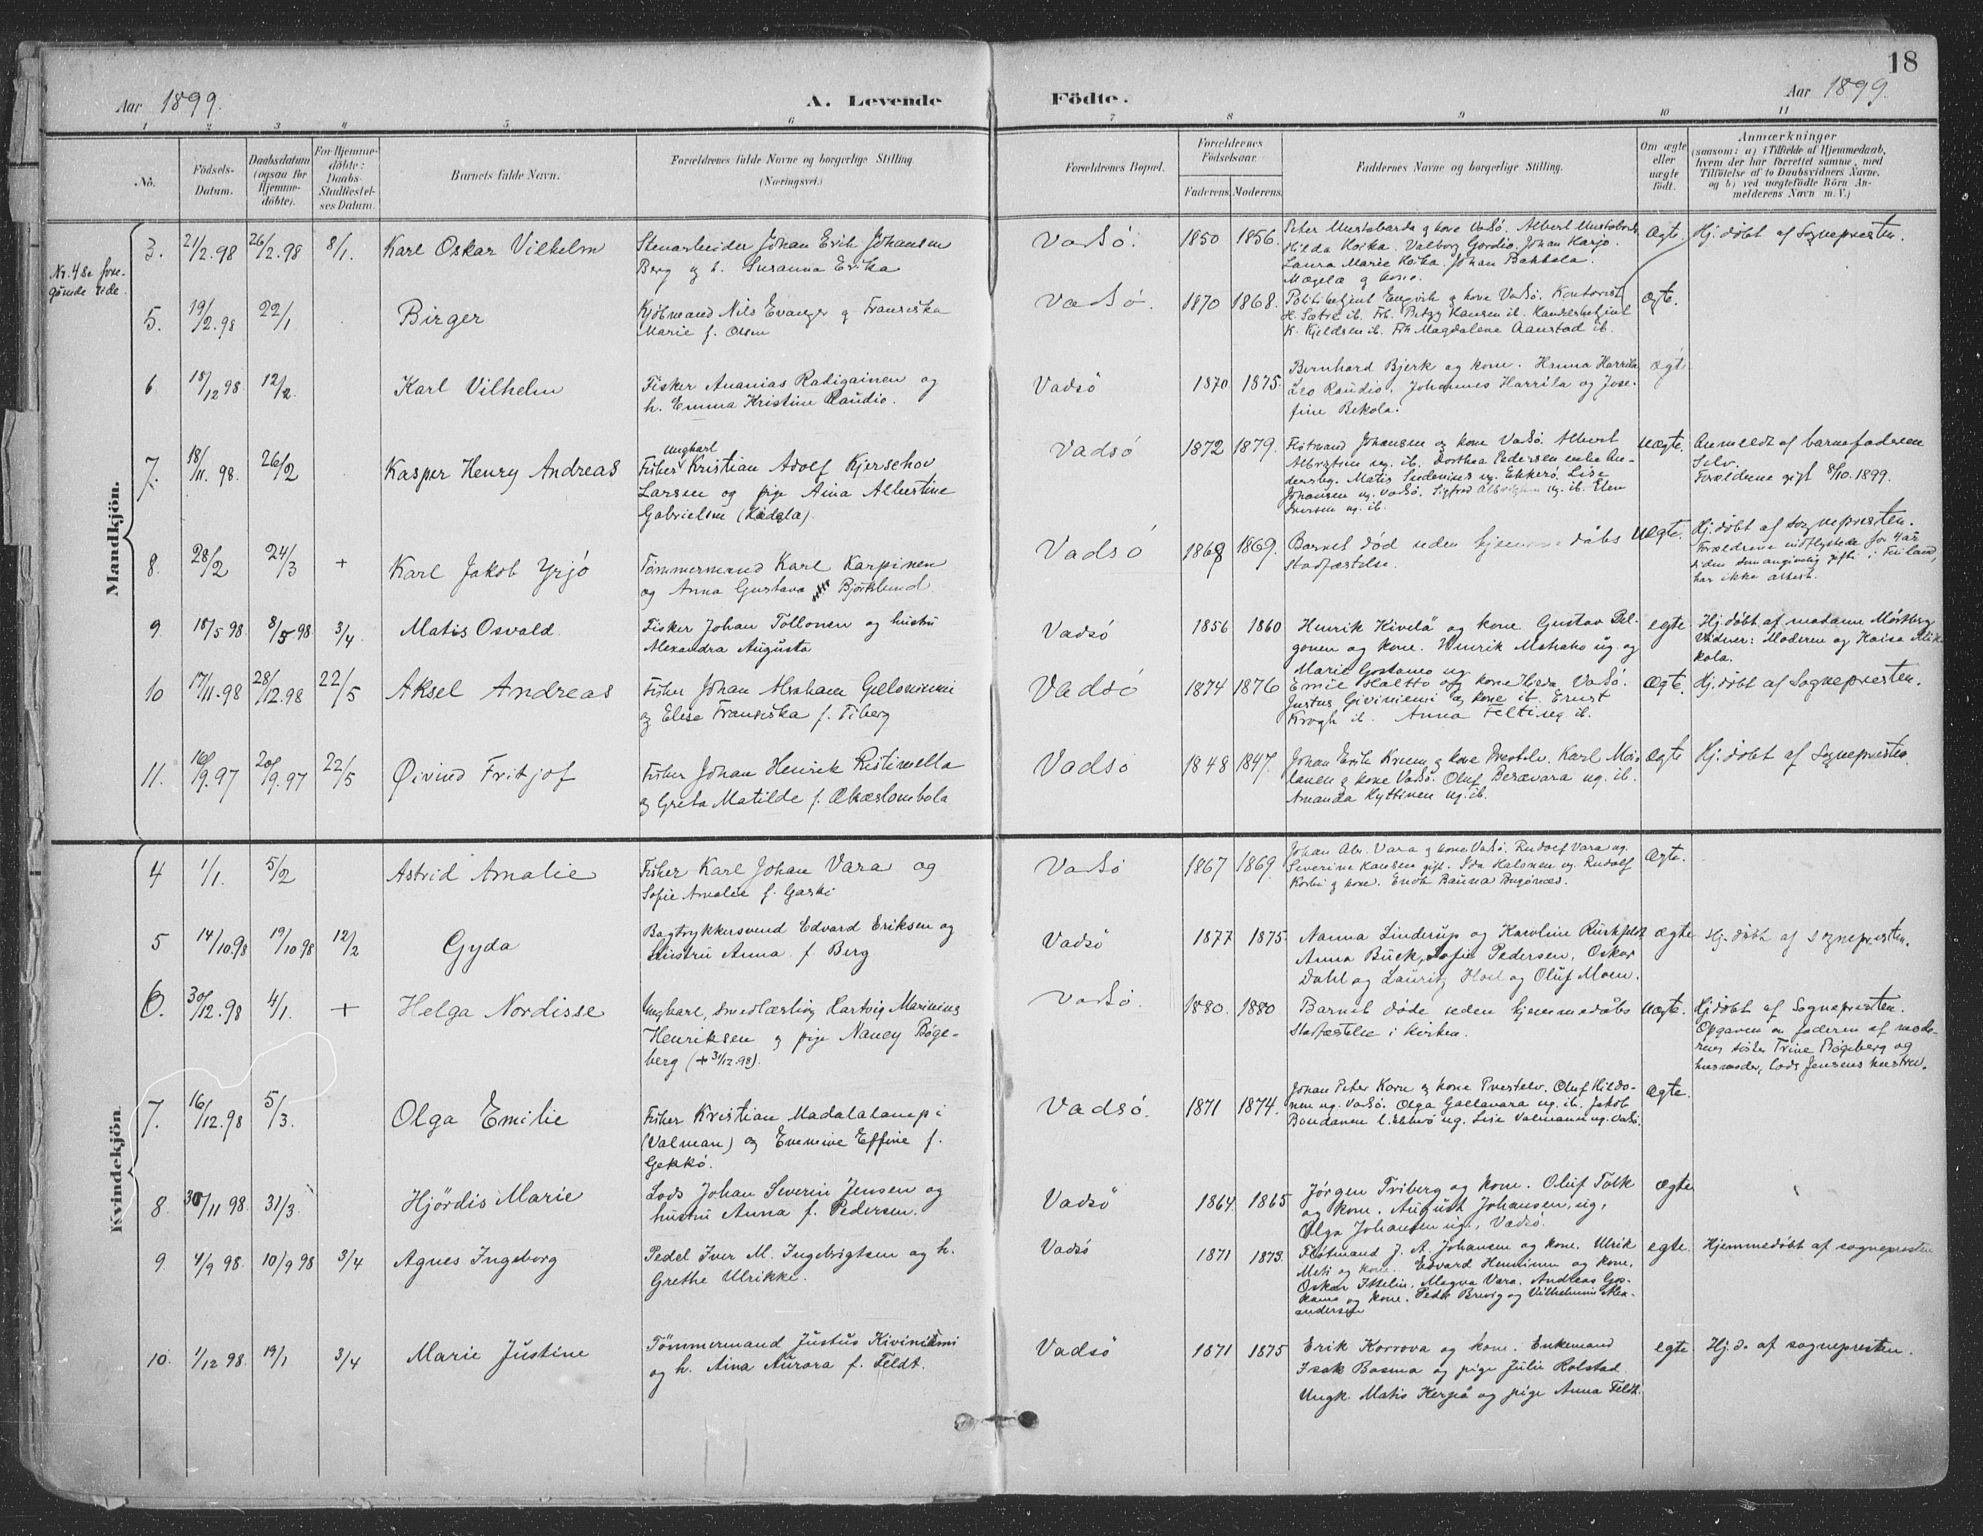 18
Aar 1899.
A. Levende
Födte.
Aar 1899.
1 2 3 4 5 6 7 8 9 10 11
No.
Födsels-
Datum.
Daabsdatum
(ogsaa for
Hjemme-
döbte).
For Hjemme-
döbte:
Daabs-
Stadfæstel-
ses Datum.
Barnets fulde Navn.
Forældrenes fulde Navne og borgerlige Stilling.
(Næringsvei.)
Forældrenes Bopæl.
Forældrenes
Födselsaar.
Faderens. Moderens.
Faddernes Navne og borgerlige Stilling.
Om ægte
eller
uægte
födt.
Anmærkninger
(saasom: a) i Tilfælde af Hjemmedaab,
hvem der har forrettet samme, med
Tilföielse af to Daabsvidners Navne,
og b) ved uægtefödte Börn An-
melderens Navn m. V.)
Mandkjön.
Nr. 4 se fore-
gående side.
3. 21/2.98 26/2.98 8/1. Karl Oskar Vilhelm
Stenarbeider Johan Erik Johansen
Berg og h. Susanna Erika
Vadsö. 1850 1856.
Hilda Koika. Valborg Gordio. Johan Karjo.
Laura Marie Koika. Johan Bakkala.
og kone.
Ægte. Hj. döbt af Sognepresten.
5. 19/2.98 22/1 Birger
Kjöbmand Nils Evanger og Fransiska
Marie f. Olsen
Vadsö. 1870 1868.
Politibetjent Engvik og kone Vadsö. Kontorist
H. Sætre ib. Frk. Betzy Hansen ib. Handelsbetjent
K. Kjeldsen ib. Frk Magdalene Aanstad ib.
Ægte.
6 18/12 98 12/2. Karl Vilhelm
Fisker Ananias Radigainen og
h. Emma Kristine Raudio.
Vadsö 1870 1875.
Bernhard Bjerk og kone. Hanna Harrila
Leo Raudio. Johannes Harrila og Jose-
fine Bekola.
ægte
7. 18/11.98. 26/2 Kasper Henry Andreas
Ungkarl
Fisker Kristian Adolf Kjersehov
Larsen og pige Aina Albertine
Gabrielsen (Lådela).
Vadsö 1872 1879.
Flötmand Johansen og kone Vadsö. Albert
ug. ib. Dorthea Pedersen enke An-
dersby. Matis ug. Ekkerö. Lise
Johansen ug. Vadsö. Sigfred ug. ib. Elen
Iversen ug. ib.
uægte. Anmeldt af barnefaderen
selv.
Forældrene gift 8/10.1899.
8. 28/2 24/3 + Karl Jakob Yrjö
Tömmermand Karl Karpinen
og Anna Gustava Björklund
Vadsö 1868 1869.
Barnet död uden hjemmedåbs
stadfæstelse.
Uegte. Hj. döbt af Sognepresten.
Forældrene indflyttede for 4 år
siden som angivelig gifte i Finland,
har ikke attest.
9 18/5 98 8/5 98 3/4. Matis Osvald
Fisker Johan Tollonen og hustru
Alexandra Augusta
Vadsö 1856 1860
Henrik Kivelä og kone Gustav Pel-
gonen og kone. Henrik Mahaho ug. og
Marie ug.
egte Hj. döbt af madame Mörtberg
Vidner: Moderen og Kaisa Mik-
kola.
10 17/11.98 28/12.98 22/5 Aksel Andreas
Fisker Johan Abraham
og Elise Fransiska f. Fiberg
Vadsö 1874 1876
Emil Haltto og kone Heda Vadsö.
Justus Giviniemi og kone ib. Ernst
Krogh ib. Anna Felt ug. ib.
Ægte. Hj. döbt af Sognepresten.
11. 16/9.97 20/9.97 22/5 Øivind Fritjof
Fisker Johan Henrik Ristimella
og Greta Matilde f. Akæslombola
Vadsö 1848 1847.
Johan Erik Krum og kone Prestelv. Karl Mois-
lanen og kone Vadsö. Oluf Beravara ug. ib.
Amanda Kyttinen ug. ib.
Ægte Hj. döbt af Sognepresten.
Kvindekjön.
4 1/1. 5/2 Astrid Amalie
Fisker Karl Johan Vara og
Sofie Amalie f. Gaski
Vadsö 1867 1869.
Johan Abr. Vara og kone Vadsö. Rudolf Vara ug.
Severine Hansen gift. Ida Halonen ug. Rudolf
Korbi og kone. Erik Bauna Bugönæs.
Ægte.
5 14/10.98 19/10 98 12/2 Gyda
Bogtrykkersvend Edvard Eriksen og
hustru Anna f. Berg
Vadsö 1877 1875.
Nanna Linderup og Karoline
Anna Buck, Sofie Pedersen, Oskar
Dahl og Lauritz Hoel og Oluf Moen.
ægte Hj. döbt af Sognepresten.
6. 30/12.98 4/1. + Helga Nordisse
Ungkarl, smedlærling Hartvig Marinius
Henriksen og pige Nancy Bøge-
berg (+ 31/12.98).
Vadsö. 1880. 1880
Barnet døde uden hjemmedåbs
Stadfæstelse i kirken.
Uægte. Hj. döbt af Sognepresten.
Opgaven om faderen af mode-
rens søster Trine Bøgeberg og
husmoder, Lods Jensens hustru.
7. 16/12.98 5/3. Olga Emilie
Fisker Kristian Madalalampi
(Valman) og Evensine Effine f.
Gekkö.
Vadsö. 1871 1874.
Johan Peter Korn og kone Prestelv. Oluf Hildo-
nen ug. Vadsö. Olga Gallavara ug. ib. Jakob
Bondanen l. Ekkerö ug. Lise Valmann ug. Vadsö.
Ægte.
8. 30/11 98 31/3. Hjördis Marie
Lods Johan Severin Jensen og
hustru Anna f. Pedersen.
Vadsö 1864 1865
Jörgen Friberg og kone. Oluf Tolk
og kone. August Johansen, ug.,
Olga Johansen ug., Vadsö.
ægte
9. 4/9 98. 10/9 98 3/4 Agnes Ingeborg
Pedel Iver M. Ingebrigtsen og h.
Grethe Ulrikke.
Vadsö 1871 1873.
Flötmand J. A. Johansen og kone. Ulrik
Meti og kone. Edvard Henriksen og kone.
Oskar Ittelin. Magna Vara. Andreas Gos-
kama og kone. Peder Brevig og Vilhelmine Alex-
andersen
egte. Hjemmedöbt af sognepresten
10. 1/12 98. 19/1 3/4 Marie Justine
Tömmermand Justus Kiviniemi
og h. Aina Aurora f. Feldt.
Vadsö 1871 1875
Erik Korrova og kone. Enkemand
Isak Basma og pige Julie Rolstad
Ungk. Matis Kerpä og pige Anna Feldt.
egte Hj. d. af sognepresten.